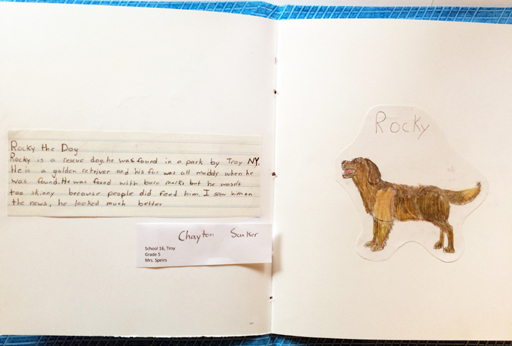 Rocky the Dog
Rocky is a rescue dog. he was found in a park by Troy NY.
He is a golden retriever and his fur was all muddy when he
was found. He was found with burn marks but he wasn't
too skiney because people did feed him. I saw him on
the news, he looked much better
Chayton
School 16, Troy
Grade 5
Mrs. Speirs
Rocky